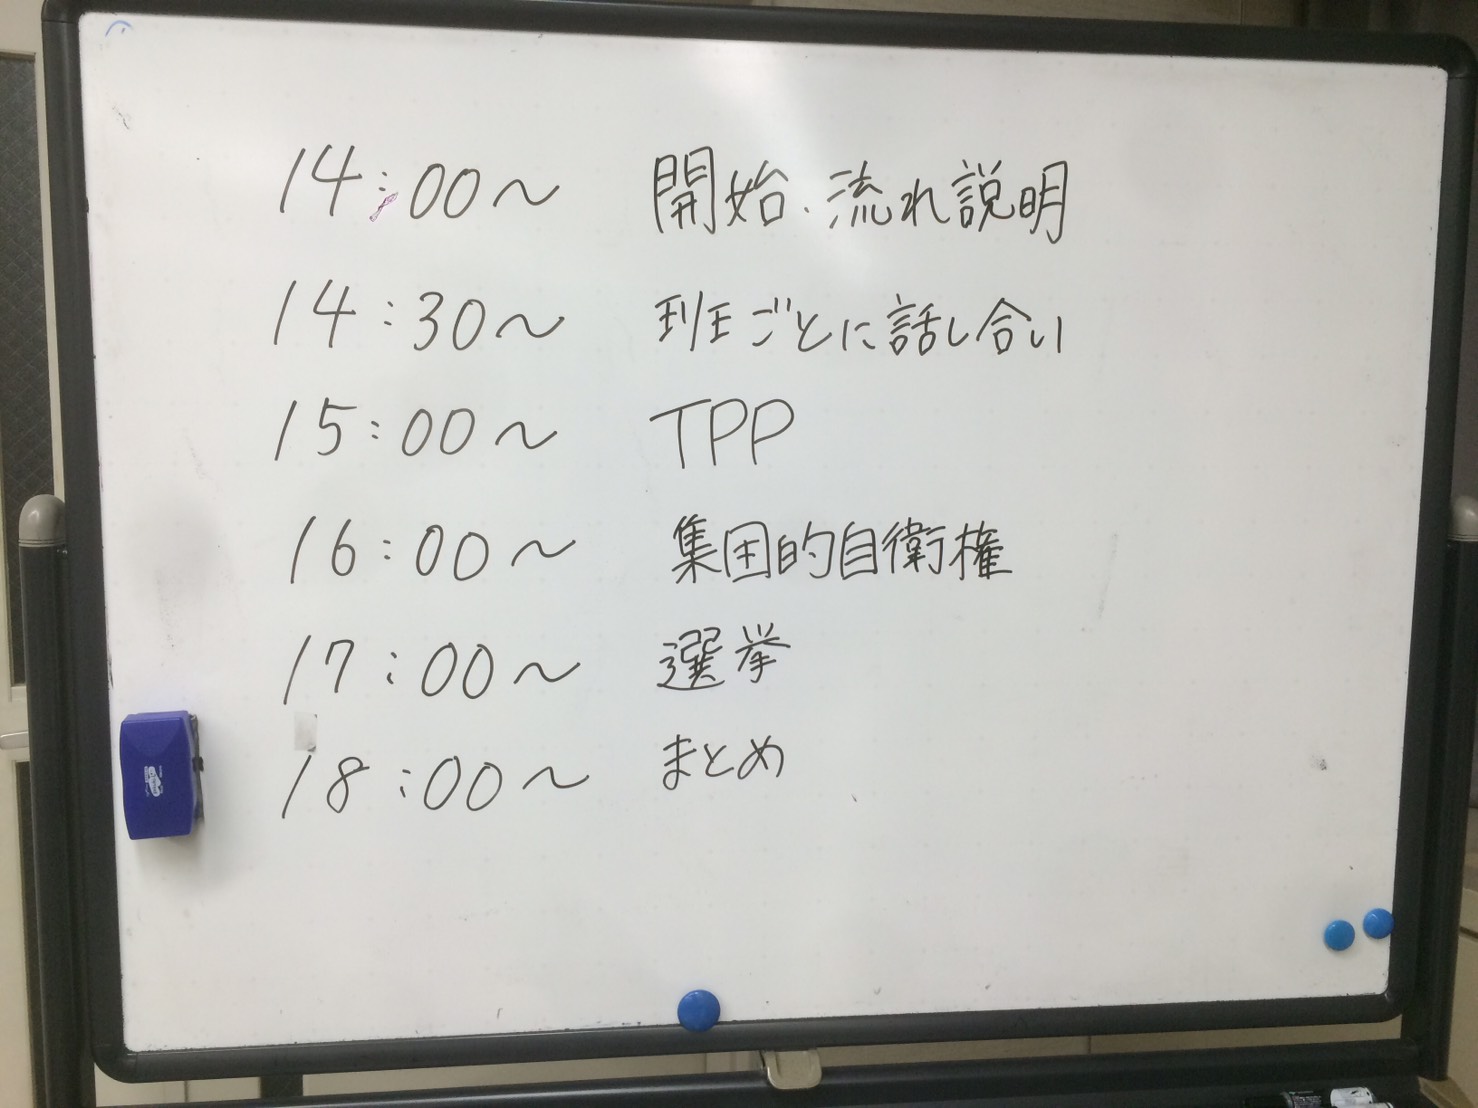 14:00～ 開始・流れ説明
14:30～ 班ごとに話し合い
15:00～ TPP
16:00～ 集団的自衛権
17:00～ 選挙
18:00～ まとめ